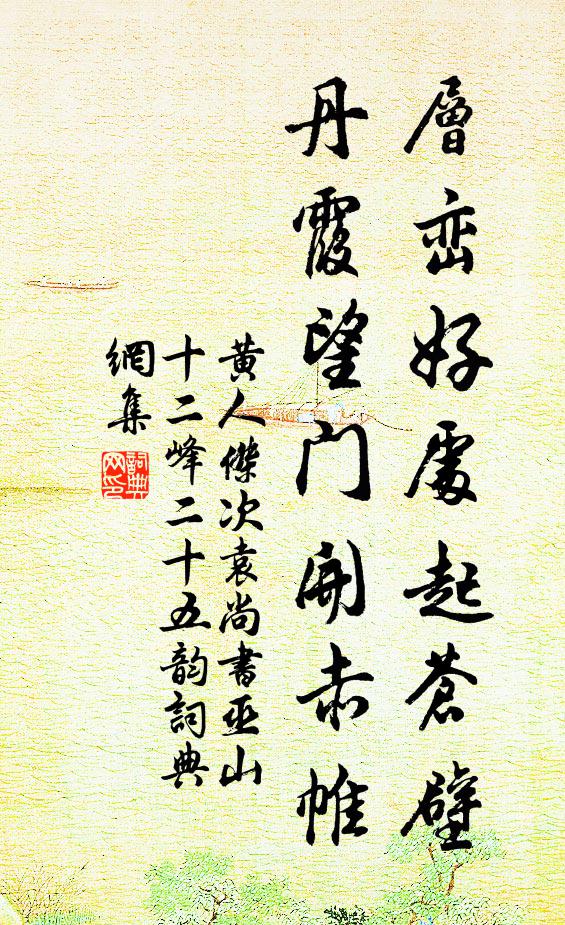 層巒好處起蒼壁
丹霞望門開赤帷
黄人傑次袁尚書巫山
十二峰二十五韵詞典
網集
詞典
网印